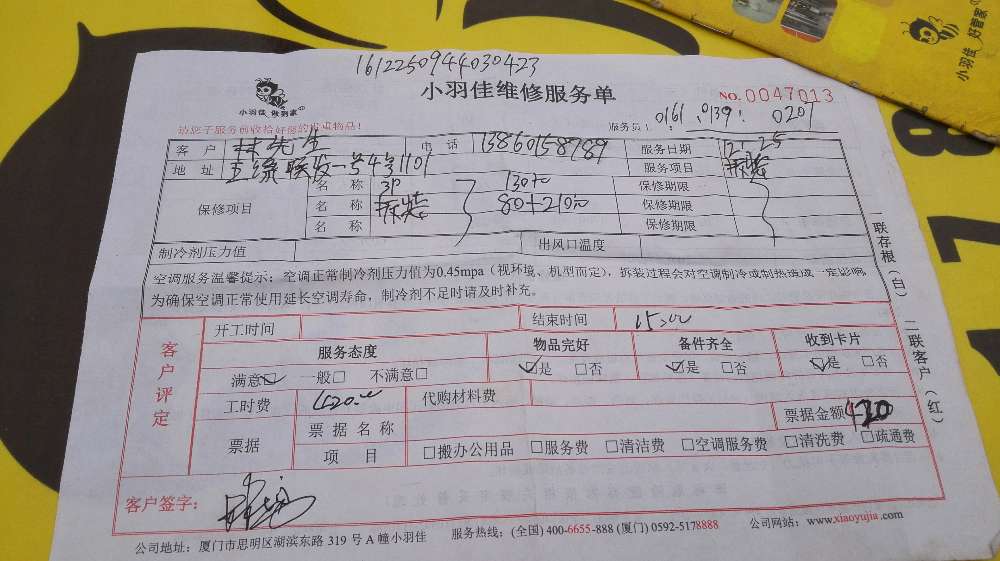 1612250944030423
小羽佳 做到家
小羽佳维修服务单
NO. 0047013
请您于服务前收拾好您的贵重物品！
服务员： 0161 0139 0207
客 户 林先生 电 话 13860158989 服务日期 12.25
地 址 联发一号4号1101 服务项目 拆装
保修项目
名 称 3P 130元 保修期限
名 称 拆装 80+210元 保修期限
名 称 保修期限
制冷剂压力值 出风口温度
空调服务温馨提示：空调正常制冷剂压力值为0.45mpa（视环境、机型而定），拆装过程会对空调制冷或制热造成一定影响，
为确保空调正常使用延长空调寿命，制冷剂不足时请及时补充。
一联存根（白） 二联客户（红）
客户评定
开工时间 结束时间 15:00
服务态度 物品完好 备件齐全 收到卡片
满意☑ 一般□ 不满意□ ☑是 □否 ☑是 □否 ☑是 □否
工时费 420.00 代购材料费
票据 票据名称 票据金额 420
项 目 □搬办公用品 □服务费 □清洁费 □空调服务费 □清洗费 □疏通费
客户签字：
公司地址：厦门市思明区湖滨东路 319 号 A 幢小羽佳 服务热线：(全国) 400-6655-888 (厦门) 0592-5178888 公司网站：www.xiaoyujia.com
小羽佳 好管家